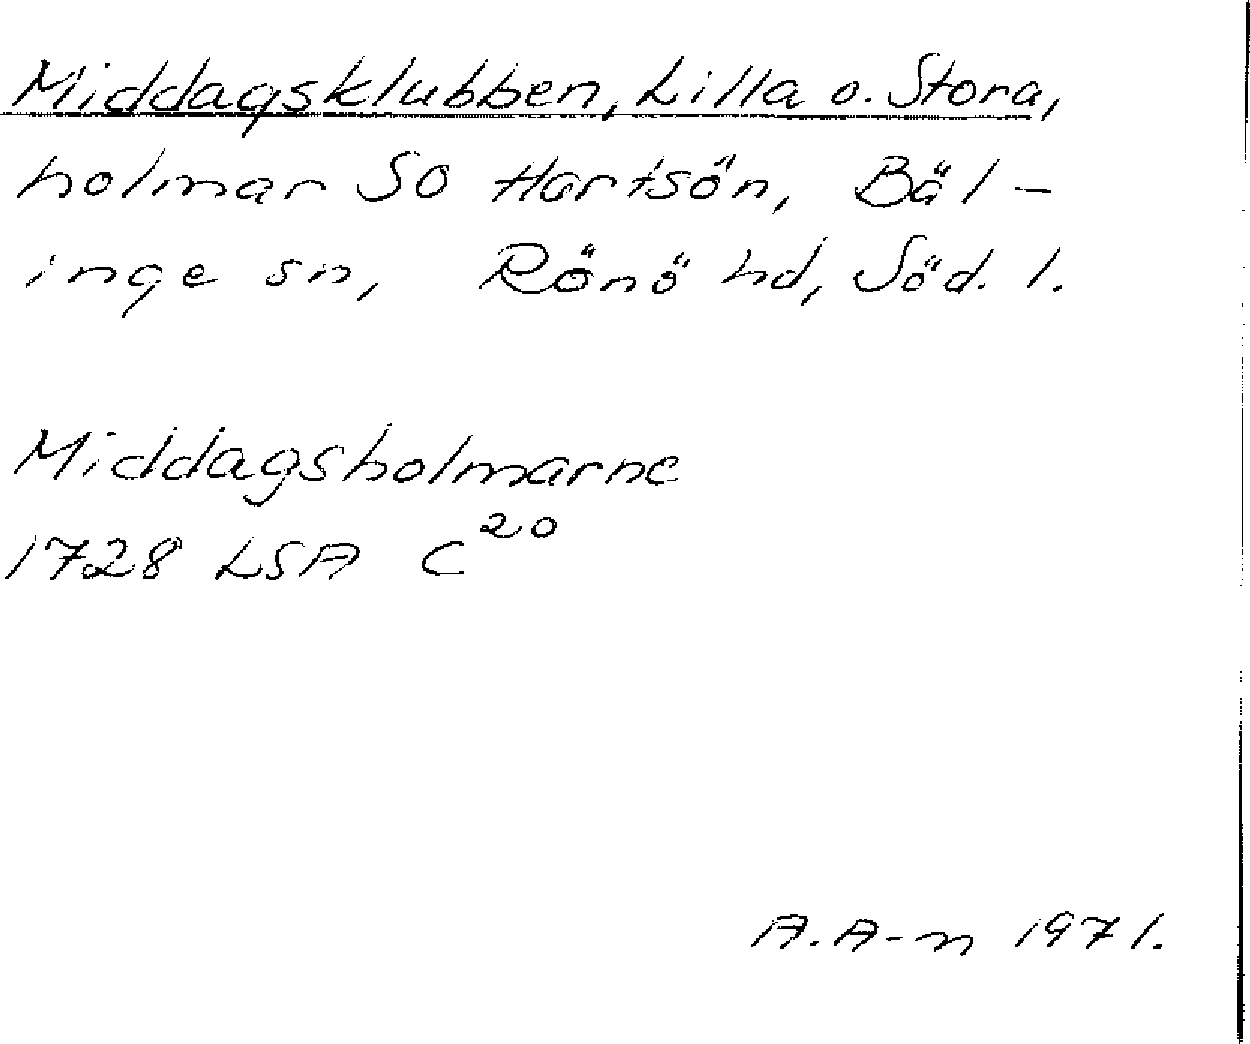 Middagsklubben, Lilla o. Stora,
holmar SO Hartsön, Bäl-
inge sn, Rönö hd, Söd. l.
Middagsholmarne
1728 LSA C²⁰
A. A-n 1971.